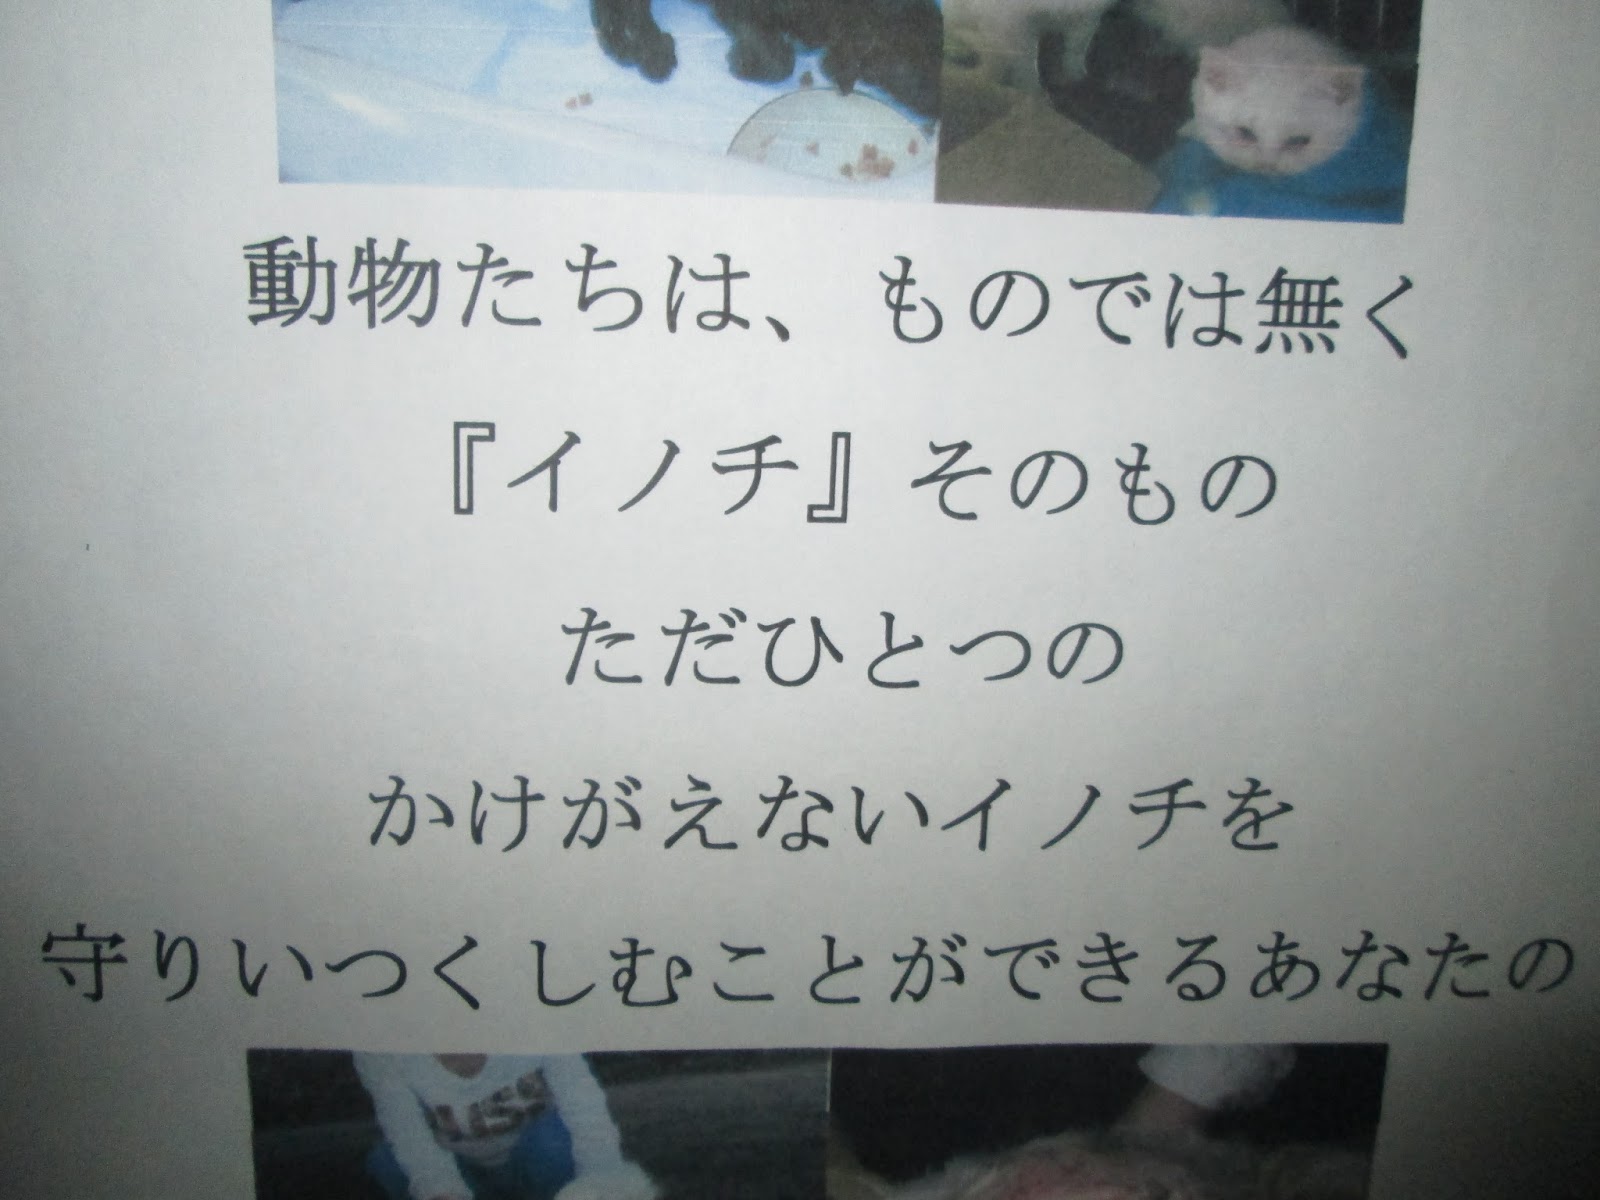 動物たちは、ものでは無く
『イノチ』そのもの
ただひとつの
かけがえないイノチを
守りいつくしむことができるあなたの